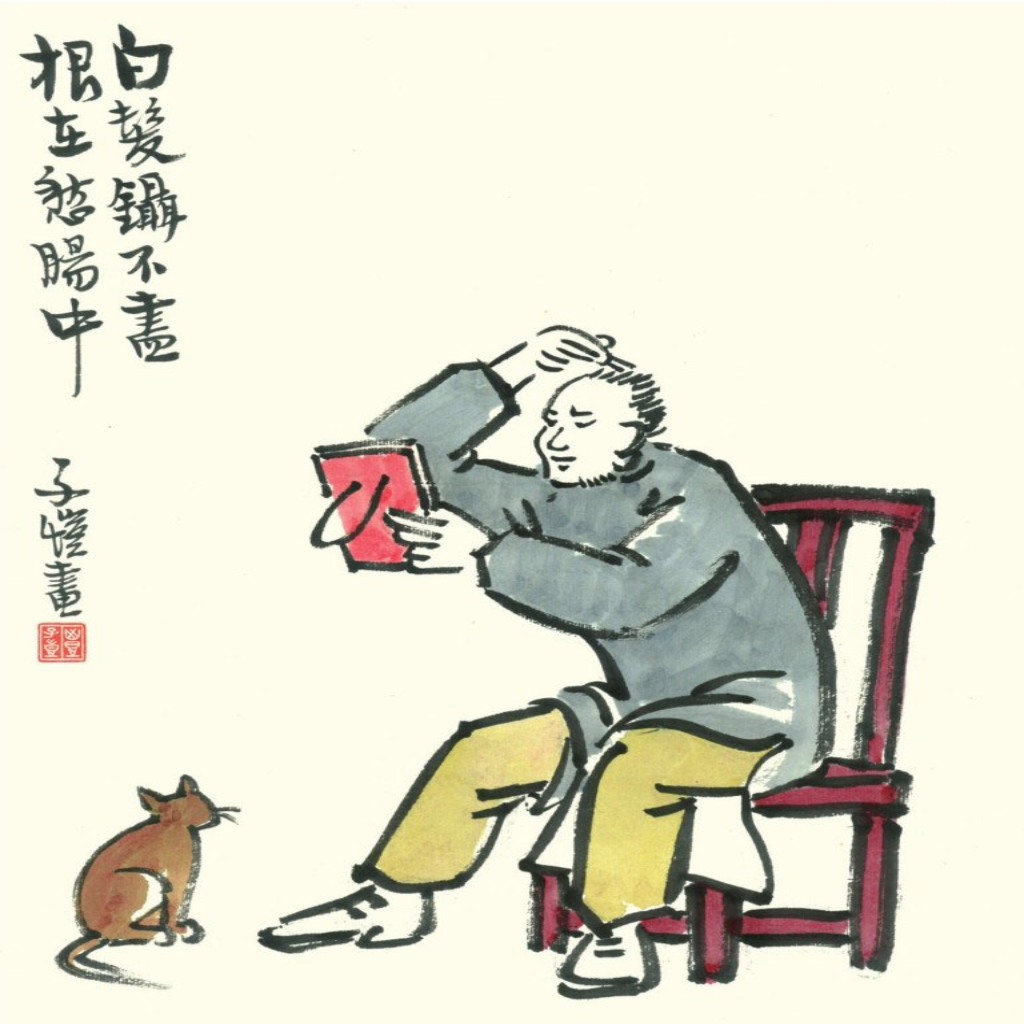 白髮鑷不盡
根在愁腸中
子愷畫